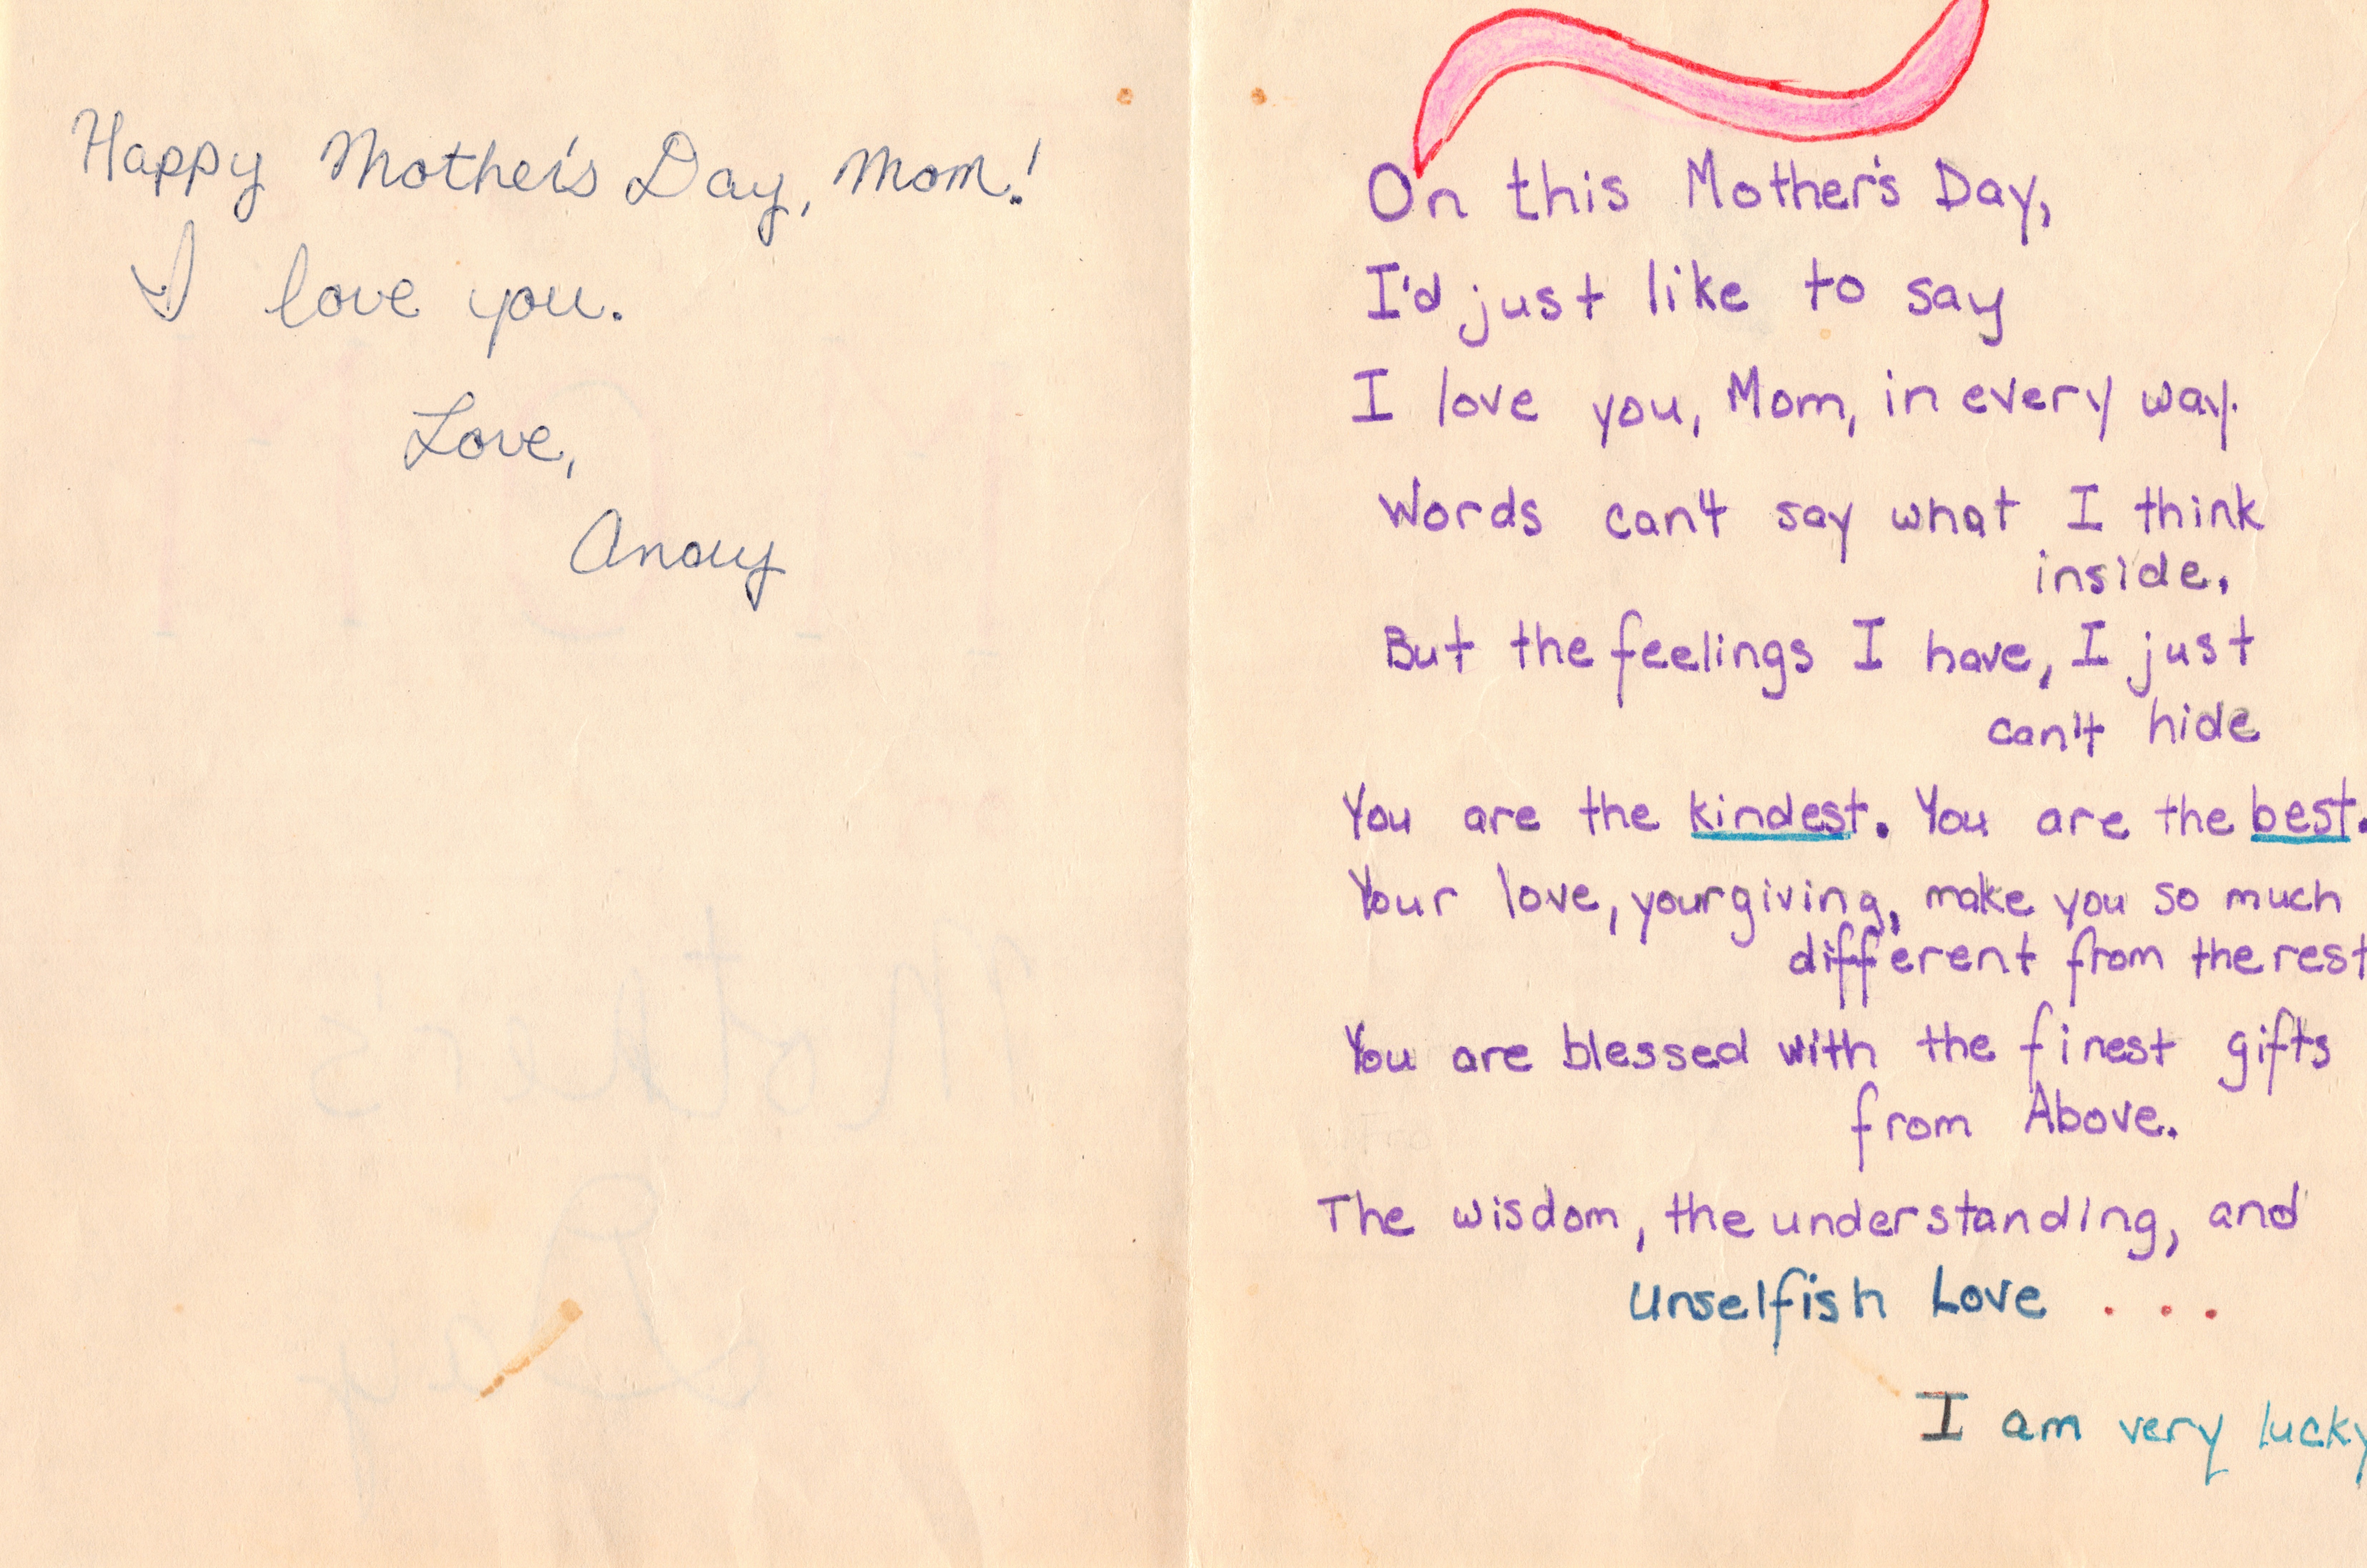 Happy Mother's Day, Mom!
I love you.
Love,
On this Mother's Day,
I'd just like to say
I love you, Mom, in every way.
Words can't say what I think
inside.
But the feelings I have, I just
can't hide
You are the kindest. You are the best.
Your love, your giving, make you so much
different from the rest
You are blessed with the finest gifts
from Above.
The wisdom, the understanding, and
Unselfish Love . . .
I am very lucky